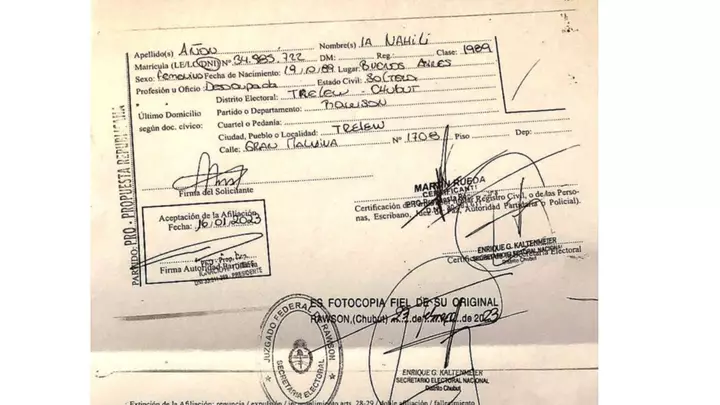 Apellido(s) AÑON Nombre(s) IA NAHILI
Matrícula (LE/LC/DNI) Nº 34.985.722 DM: Reg.: Clase: 1989
Sexo: Femenino Fecha de Nacimiento: Lugar: BUENOS AIRES
Profesión u Oficio Desocupada Estado Civil: SOLTERA
Distrito Electoral: TRELEW - CHUBUT
Último Domicilio Partido o Departamento: RAWSON
según doc. cívico: Cuartel o Pedanía:
Ciudad, Pueblo o Localidad: TRELEW
Calle: GRAN MALVINA Nº 1708 Piso Dep:
PARTIDO: PRO - PROPUESTA REPUBLICANA
Firma del Solicitante
MARTIN RUEDA
CERTIFICANTE
Certificación de Registro Civil, o de las Perso-
nas, Escribano, Juez de Paz, Autoridad Partidaria o Policial).
Aceptación de la Afiliación
Fecha: 16/01/2023
Firma Autoridad Partidaria
PRESIDENTE
ENRIQUE G. KALTENMEIER
SECRETARIO ELECTORAL NACIONAL
Distrito Chubut
Electoral
ES FOTOCOPIA FIEL DE SU ORIGINAL
RAWSON, (Chubut) 27 de de 2023
JUZGADO FEDERAL RAWSON
SECRETARIA ELECTORAL
ENRIQUE G. KALTENMEIER
SECRETARIO ELECTORAL NACIONAL
Distrito Chubut
Extinción de la Afiliación: renuncia / expulsión / arts. 28-29 / doble afiliación / fallecimiento